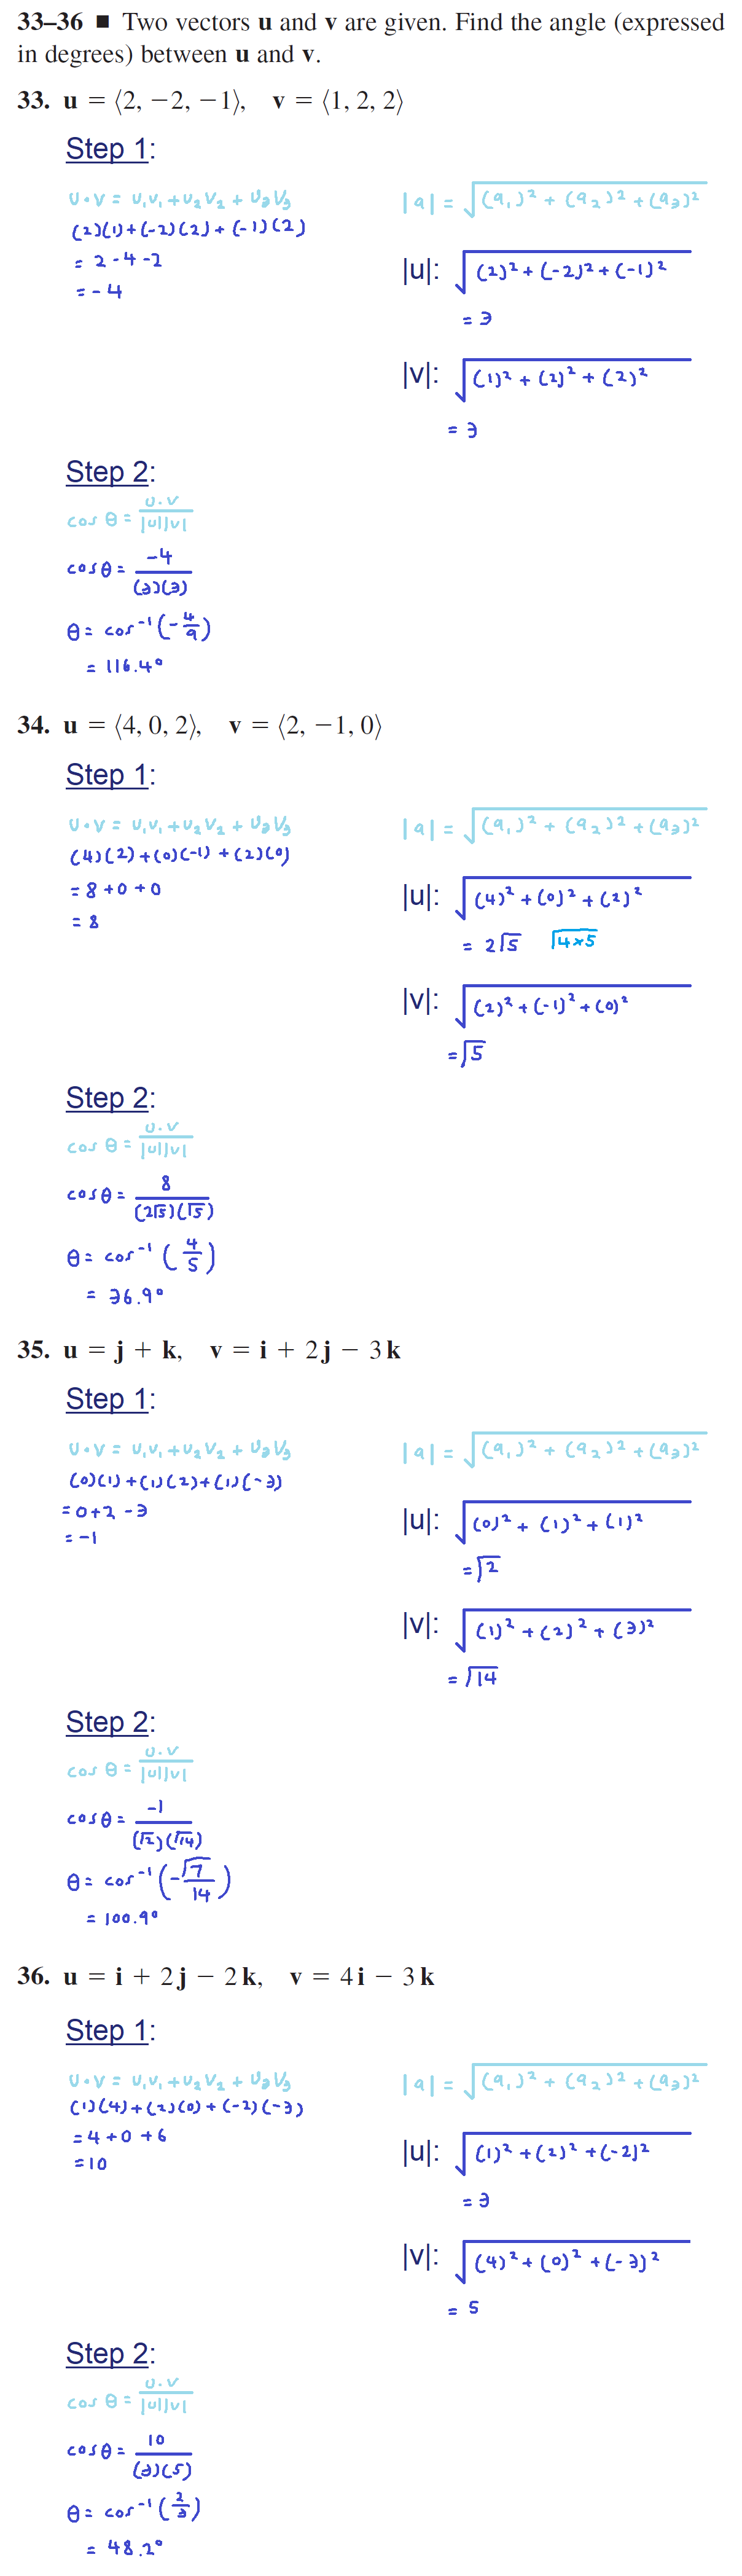 33–36 ■ Two vectors u and v are given. Find the angle (expressed
in degrees) between u and v.
33. u = ⟨2, −2, −1⟩, v = ⟨1, 2, 2⟩
Step 1:
u·v = u₁v₁ + u₂v₂ + u₃v₃
(2)(1)+(-2)(2)+(-1)(2)
= 2-4-2
= -4
|a| = √(a₁)² + (a₂)² + (a₃)²
|u|: √(2)² + (-2)² + (-1)²
= 3
|v|: √(1)² + (2)² + (2)²
= 3
Step 2:
cos θ = u·v / |u||v|
cos θ = -4 / (3)(3)
θ = cos⁻¹(-4/9)
= 116.4°
34. u = ⟨4, 0, 2⟩, v = ⟨2, −1, 0⟩
Step 1:
u·v = u₁v₁ + u₂v₂ + u₃v₃
(4)(2)+(0)(-1)+(2)(0)
= 8+0+0
= 8
|a| = √(a₁)² + (a₂)² + (a₃)²
|u|: √(4)² + (0)² + (2)²
= 2√5 √4×5
|v|: √(2)² + (-1)² + (0)²
= √5
Step 2:
cos θ = u·v / |u||v|
cos θ = 8 / (2√5)(√5)
θ = cos⁻¹(4/5)
= 36.9°
35. u = j + k, v = i + 2j − 3k
Step 1:
u·v = u₁v₁ + u₂v₂ + u₃v₃
(0)(1)+(1)(2)+(1)(-3)
= 0+2-3
= -1
|a| = √(a₁)² + (a₂)² + (a₃)²
|u|: √(0)² + (1)² + (1)²
= √2
|v|: √(1)² + (2)² + (3)²
= √14
Step 2:
cos θ = u·v / |u||v|
cos θ = -1 / (√2)(√14)
θ = cos⁻¹(-√7/14)
= 100.9°
36. u = i + 2j − 2k, v = 4i − 3k
Step 1:
u·v = u₁v₁ + u₂v₂ + u₃v₃
(1)(4)+(2)(0)+(-2)(-3)
= 4+0+6
= 10
|a| = √(a₁)² + (a₂)² + (a₃)²
|u|: √(1)² + (2)² + (-2)²
= 3
|v|: √(4)² + (0)² + (-3)²
= 5
Step 2:
cos θ = u·v / |u||v|
cos θ = 10 / (3)(5)
θ = cos⁻¹(2/3)
= 48.2°